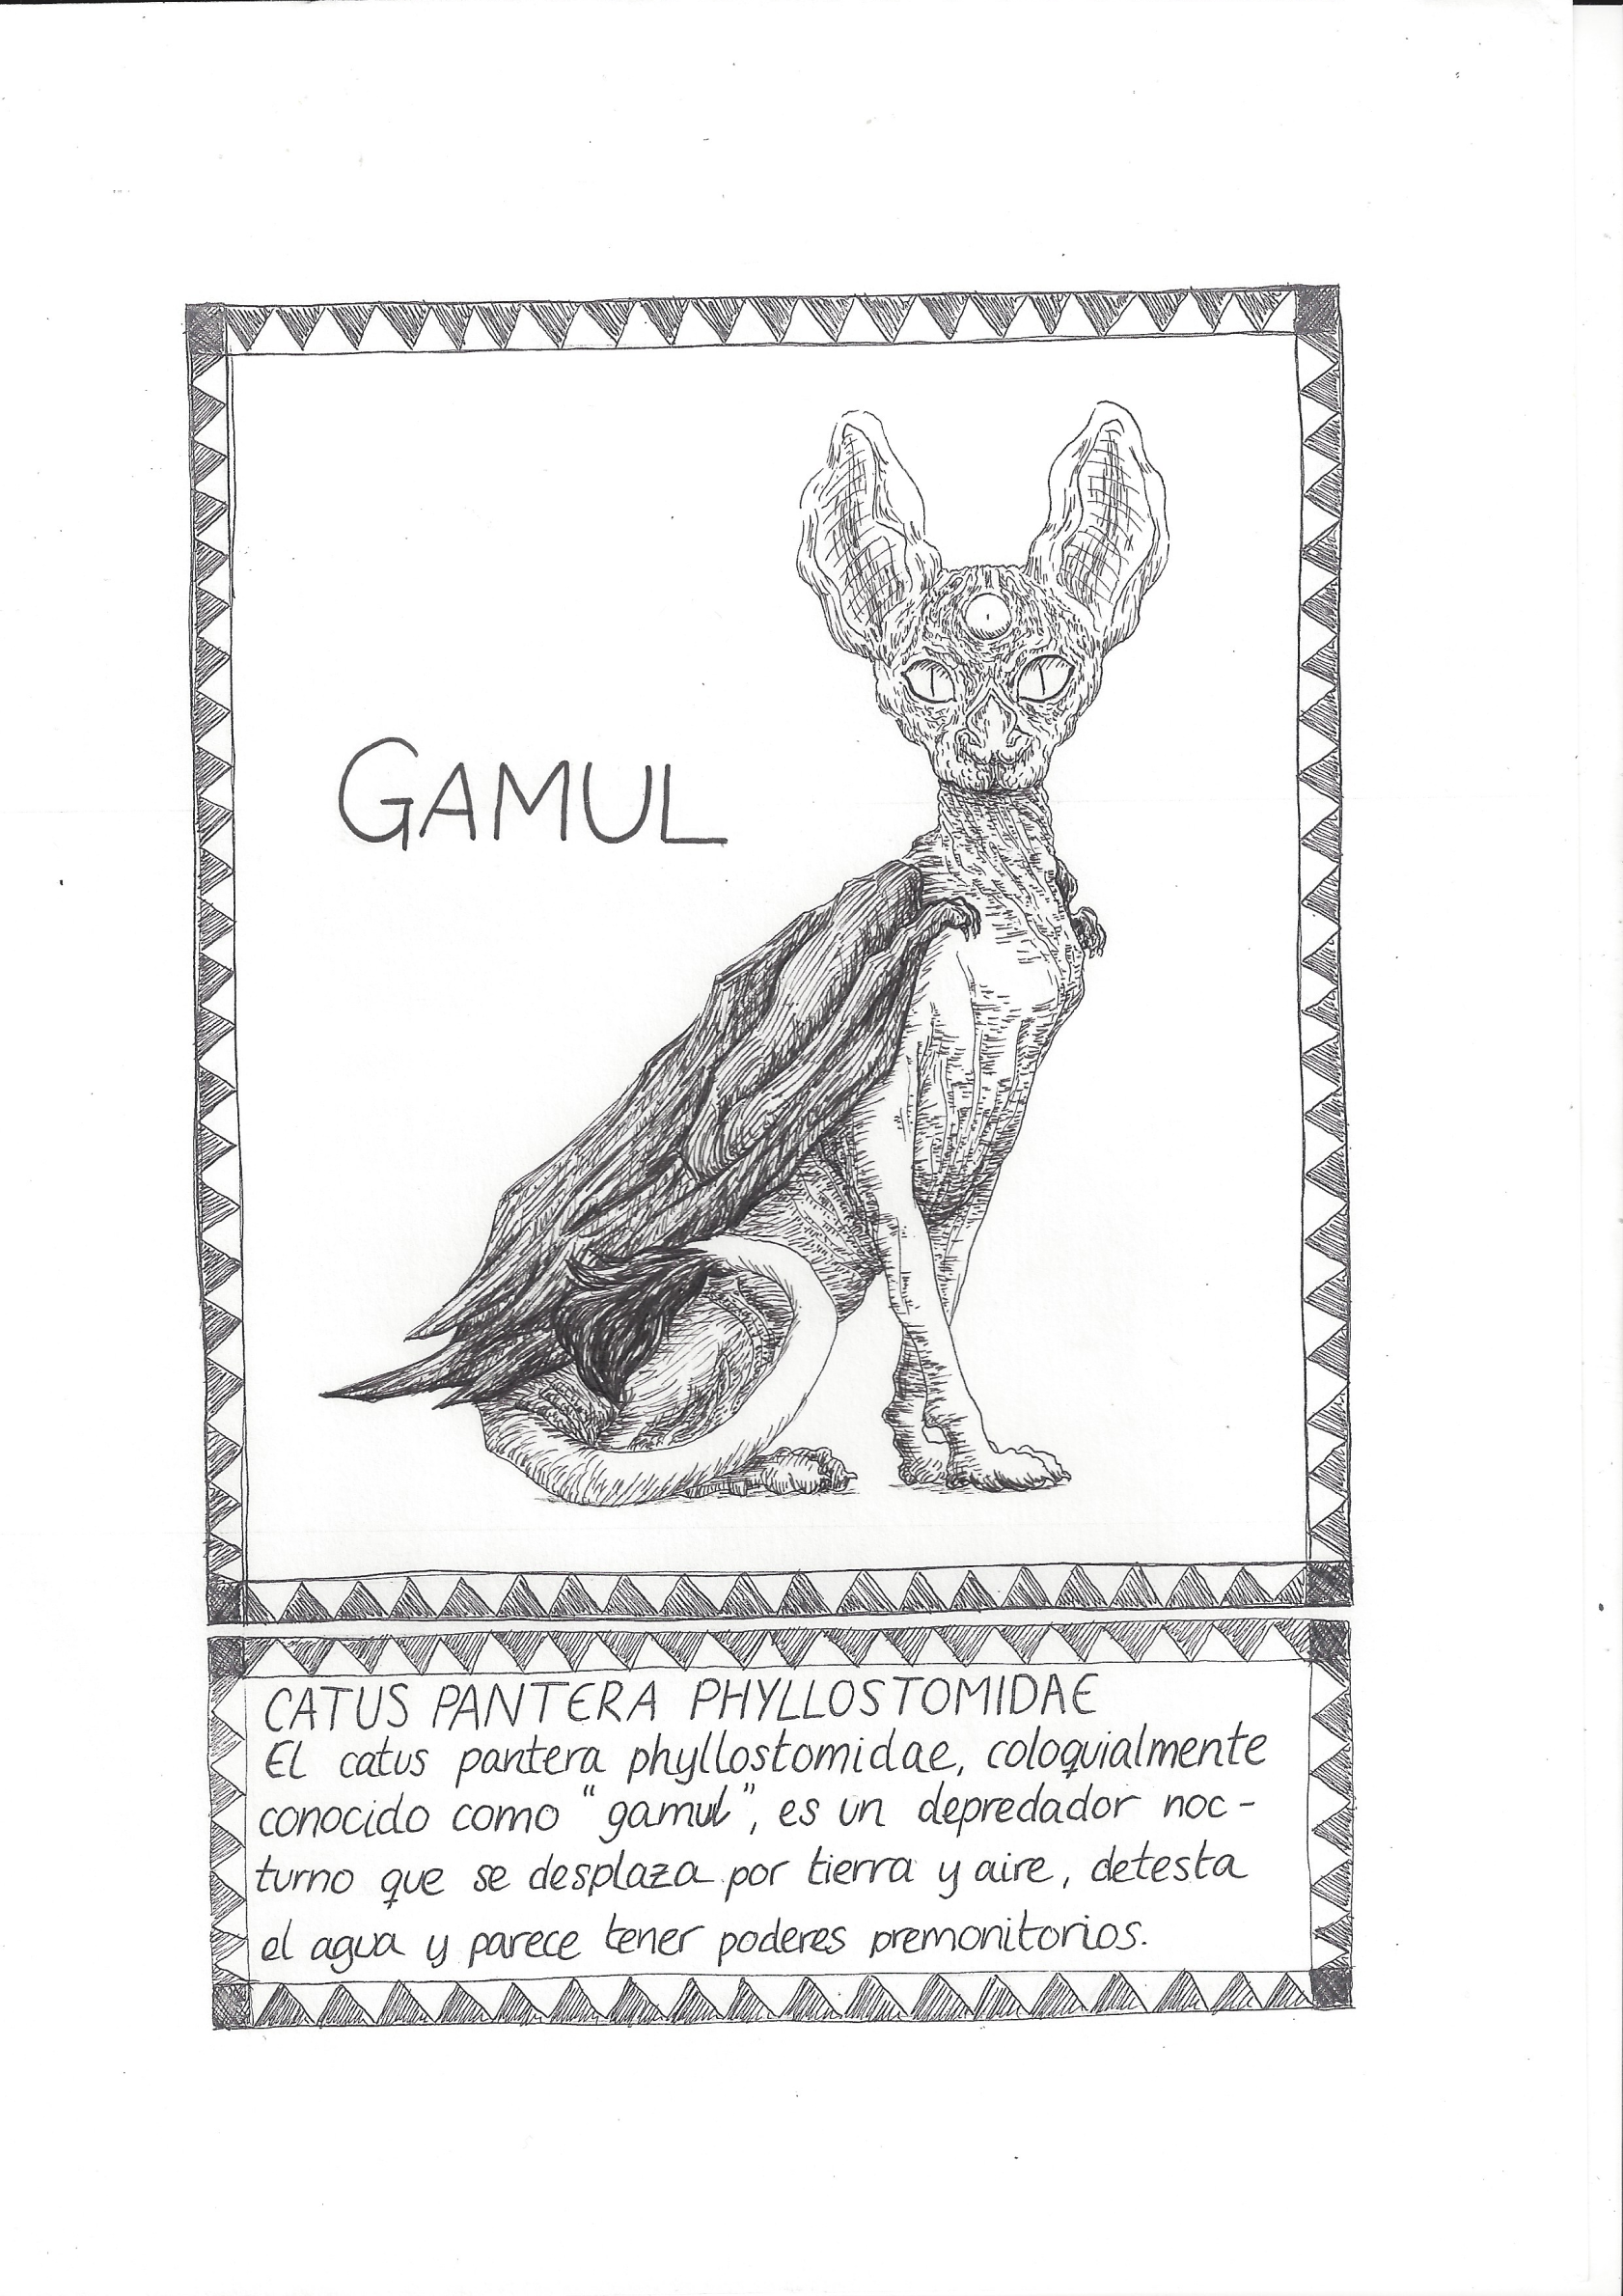 GAMUL
CATUS PANTERA PHYLLOSTOMIDAE
El catus pantera phyllostomidae, coloquialmente
conocido como "gamul", es un depredador noc-
turno que se desplaza por tierra y aire, detesta
el agua y parece tener poderes premonitorios.